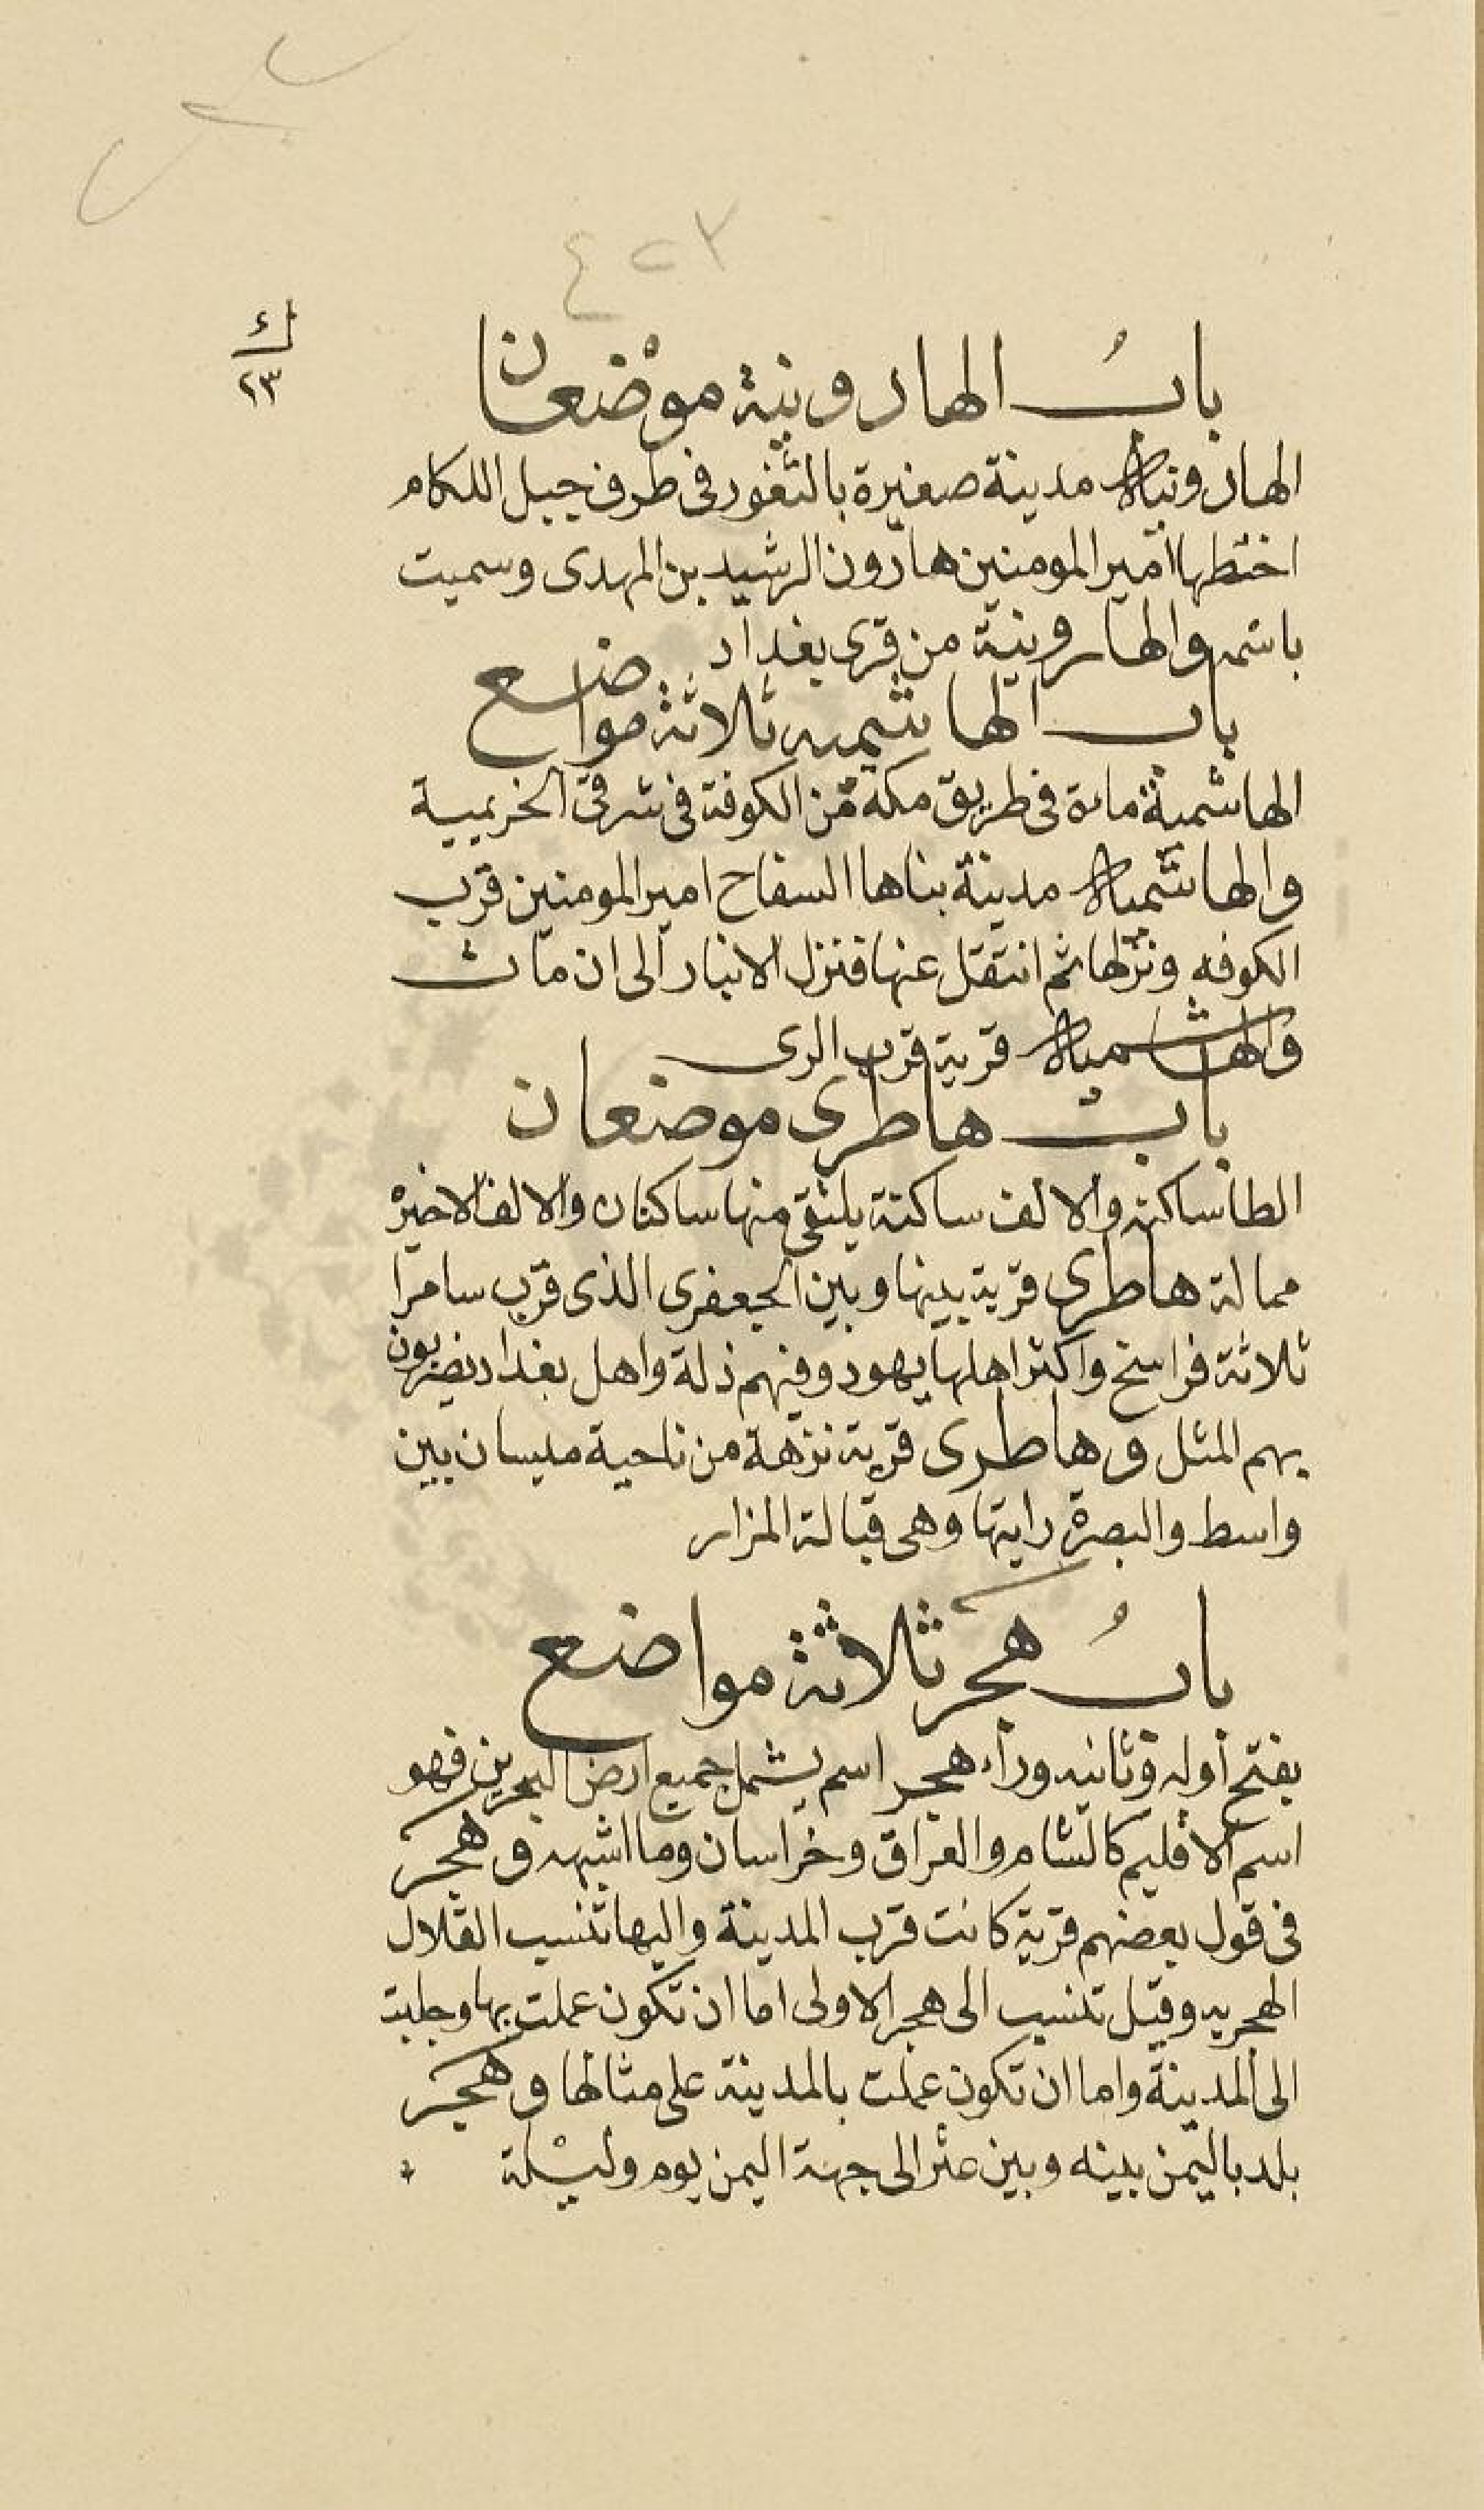 ٤٢٣
ك
٢٣
بابُ الهارونية موضعان
الهارونية مدينة صغيرة بالثغور فى طرف جبل اللكام
اختطها امير المومنين هارون الرشيد بن المهدى وسميت
باسمه والهارونية من قرى بغداد
باب الهاشميه ثلاثة مواضع
الهاشمية ماءة فى طريق مكة من الكوفة فى شرقى الخزيمية
والهاشمية مدينة بناها السفاح امير المومنين قرب
الكوفه ونزلها ثم انتقل عنها فنزل الانبار الى ان مات
والهاشمية قرية قرب الرى
باب هاطرى موضعان
الطا ساكنه والالف ساكنة يلتقى منها ساكنان والالف الاخيرة
ممالة هاطرى قرية بينها وبين الجعفرى الذى قرب سامرا
ثلاثة فراسخ واكثر اهلها يهود وفيهم ذلة واهل بغداد يضربون
بهم المثل وهاطرى قرية نزهة من ناحية ميسان بين
واسط والبصرة رايتها وهى قبالة المزار
بابُ هجر ثلاثة مواضع
بفتح أوله وثانيه وراء هجر اسم يشمل جميع ارض البحرين فهو
اسم الاقليم كالشام والعراق وخراسان وما اشبهه وهجر
فى قول بعضهم قرية كانت قرب المدينة واليها تنسب القلال
الهجريه وقيل تنسب الى هجر الاولى اما ان تكون عملت بها وجلبت
الى المدينة واما ان تكون عملت بالمدينة على مثالها وهجر
بلد باليمن بينه وبين عثر الى جهة اليمن يوم وليلة